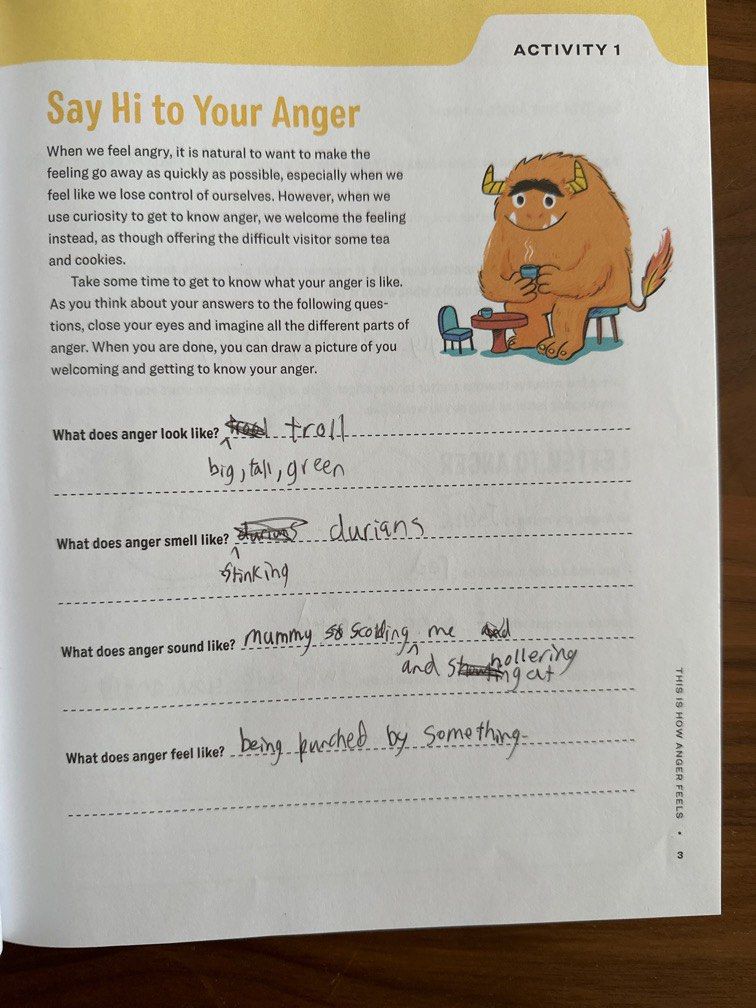 ACTIVITY 1
Say Hi to Your Anger
When we feel angry, it is natural to want to make the
feeling go away as quickly as possible, especially when we
feel like we lose control of ourselves. However, when we
use curiosity to get to know anger, we welcome the feeling
instead, as though offering the difficult visitor some tea
and cookies.
Take some time to get to know what your anger is like.
As you think about your answers to the following ques-
tions, close your eyes and imagine all the different parts of
anger. When you are done, you can draw a picture of you
welcoming and getting to know your anger.
What does anger look like? troll
big, tall, green
What does anger smell like? durians
stinking
What does anger sound like? mummy scolding me
and hollering
at
What does anger feel like? being punched by something
THIS IS HOW ANGER FEELS • 3